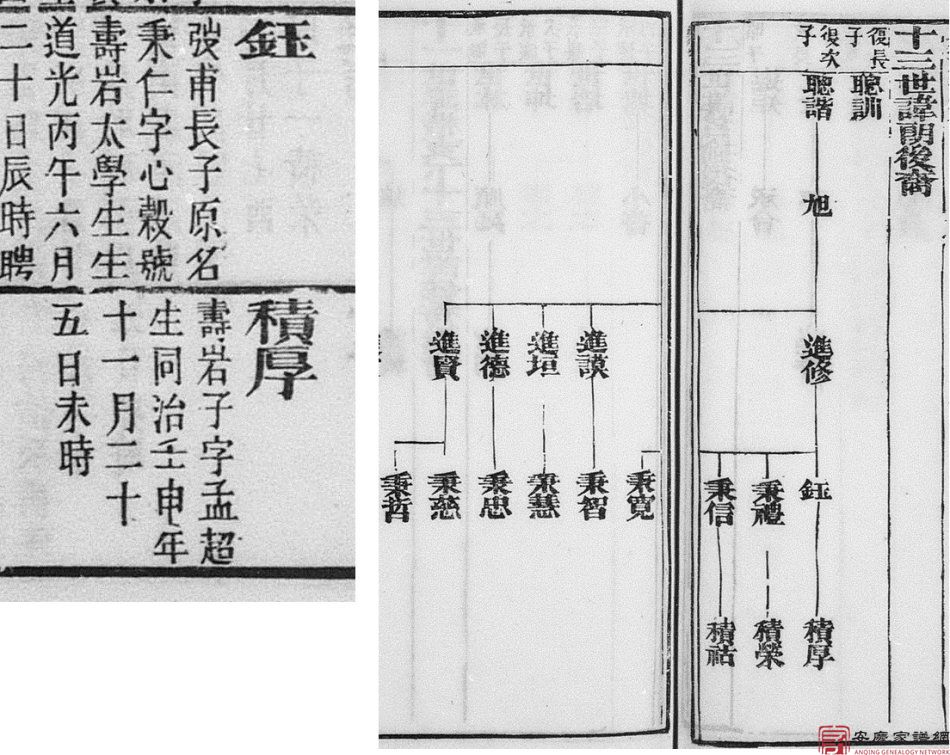 鈺
弢甫長子原名
秉仁字心穀號
壽岩太學生生
道光丙午六月
二十日辰時聘
積厚
壽岩子字孟超
生同治壬申年
十一月二十
五日未時
十三世諱朗後裔
復長
子
聰訓
復次
子
聰諧
旭
進修
鈺
積厚
秉禮
積榮
秉信
積祜
秉寬
進謨
秉智
進垣
秉慧
進德
秉忠
進賢
秉慈
秉哲
安慶家譜網
ANQING GENEALOGY NETWORK